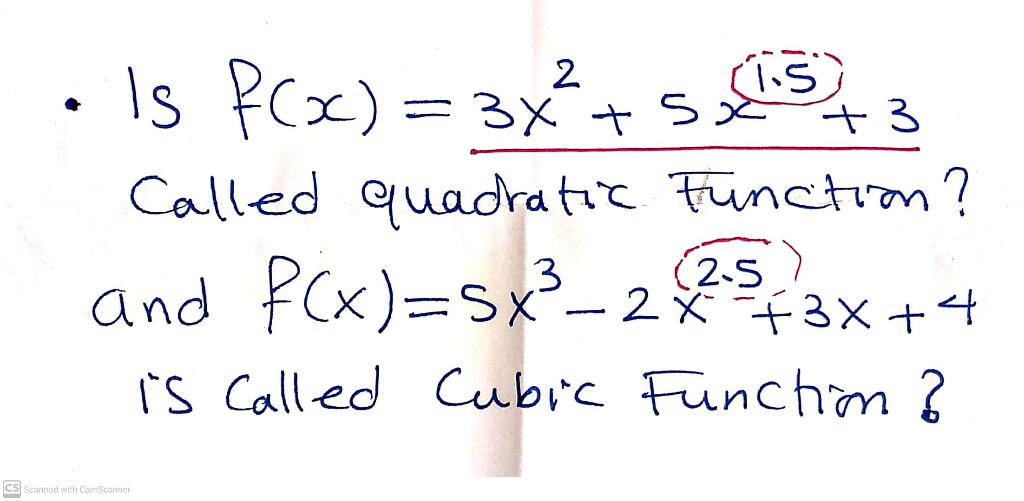 • Is f(x) = 3x² + 5x^1.5 + 3
Called quadratic Function?
and f(x)=5x³ – 2x^2.5 + 3x + 4
is Called Cubic Function?
CS Scanned with CamScanner